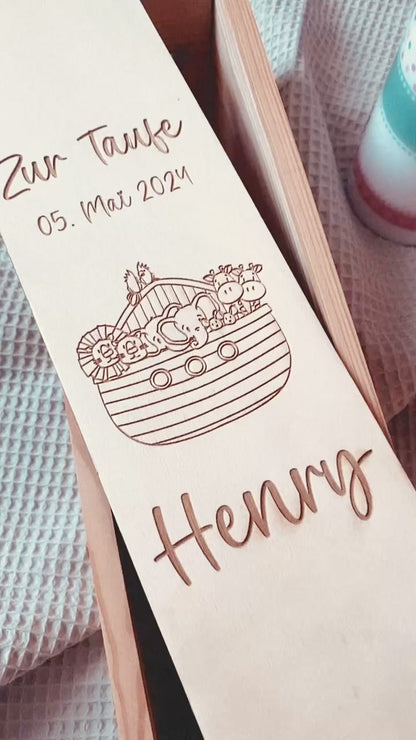 Zur Taufe
05. Mai 2024
Henry